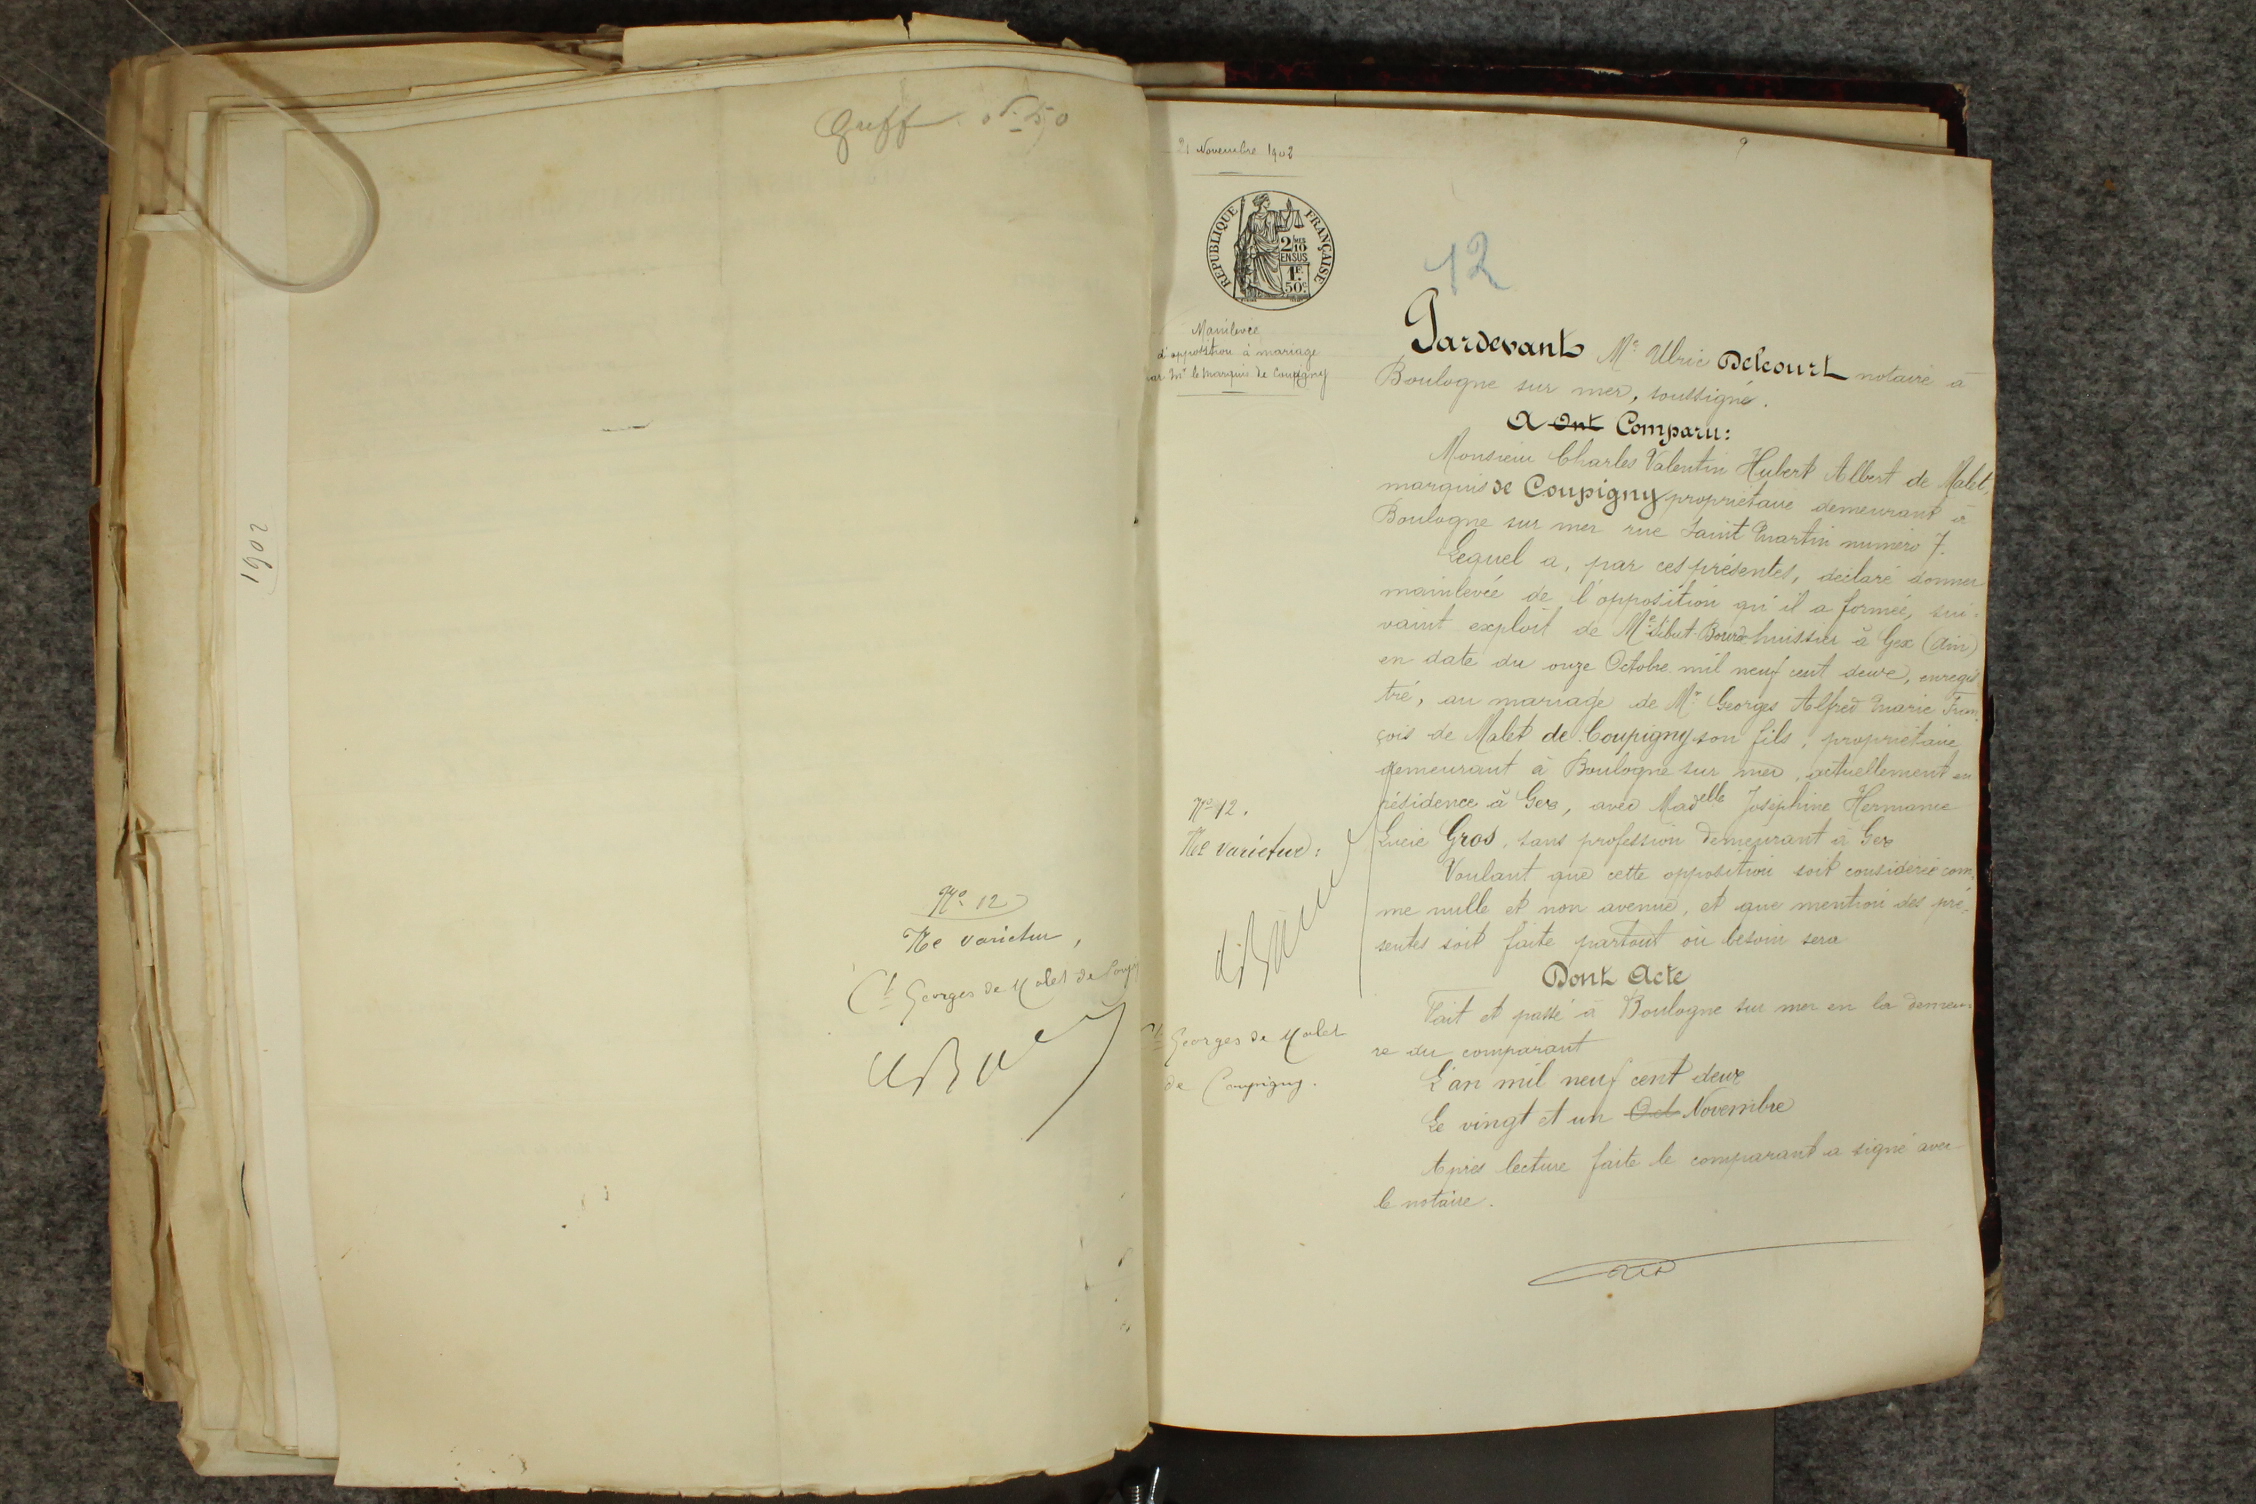 1902
Greffe 0f.50
Nº 12
Ne varietur,
Cte Georges de Malet de Coupig
21 Novembre 1902
REPUBLIQUE FRANÇAISE
2/10 MES
EN SUS
1F.
50c.
12
Mainlevée
d'opposition à mariage
par Mr le Marquis de Coupigny
Pardevant Me Ulric Delcourt notaire à
Boulogne sur mer, soussigné.
A Ont Comparu:
Monsieur Charles Valentin Hubert Albert de Malet,
marquis de Coupigny propriétaire demeurant à
Boulogne sur mer rue Saint Martin numéro 7.
Lequel a, par ces présentes, déclaré donner
mainlevée de l'opposition qu'il a formée, sui-
vaint exploit de Me huissier à Gex (Ain)
en date du onze Octobre mil neuf cent deux, enregis
tré, au mariage de Mr Georges Alfred Marie Fran
çois de Malet de Coupigny son fils, propriétaire
demeurant à Boulogne sur mer, actuellement en
résidence à Gex, avec Madelle Joséphine Hermance
Lucie Gros, sans profession demeurant à Gex
Voulant que cette opposition soit considérée com-
me nulle et non avenue, et que mention des pré-
sentes soit faite partout où besoin sera
Dont Acte
Fait et passé à Boulogne sur mer en la demeu-
re du comparant
L'an mil neuf cent deux
Le vingt et un Oct Novembre
Après lecture faite le comparant a signé avec
le notaire.
Nº 12.
Ne varietur:
Cte Georges de Malet
de Coupigny.